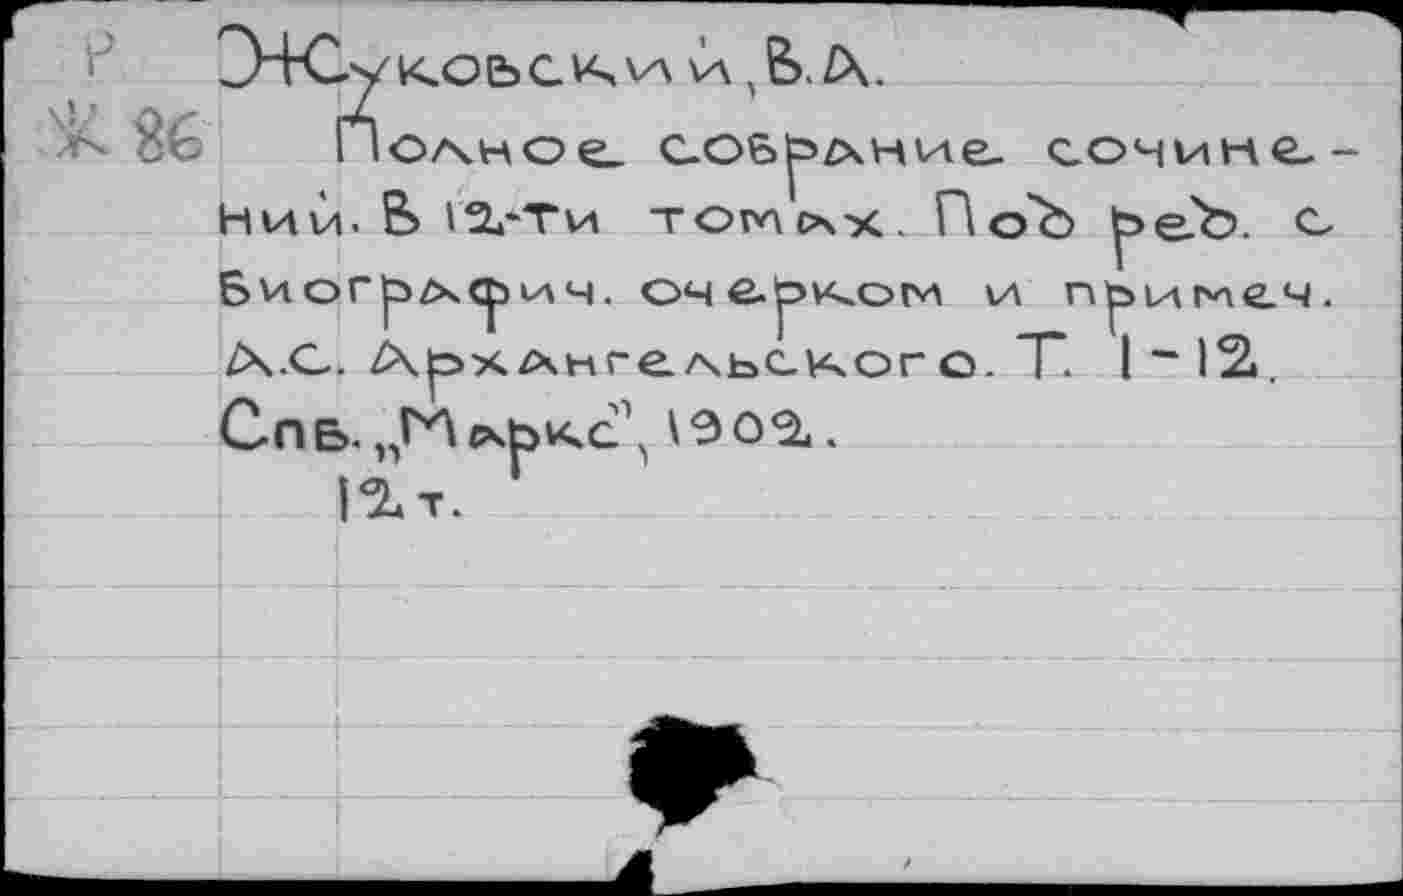 Р
Жуковский, В.А.
Ж 86
Полное собрание сочине-
ний. В 12-ти томах. Под ред. с
биографич. очерком и примеч.
А.С. Архангельского. Т. 1-12.
Спб. „Маркс", 1902.
12 т.